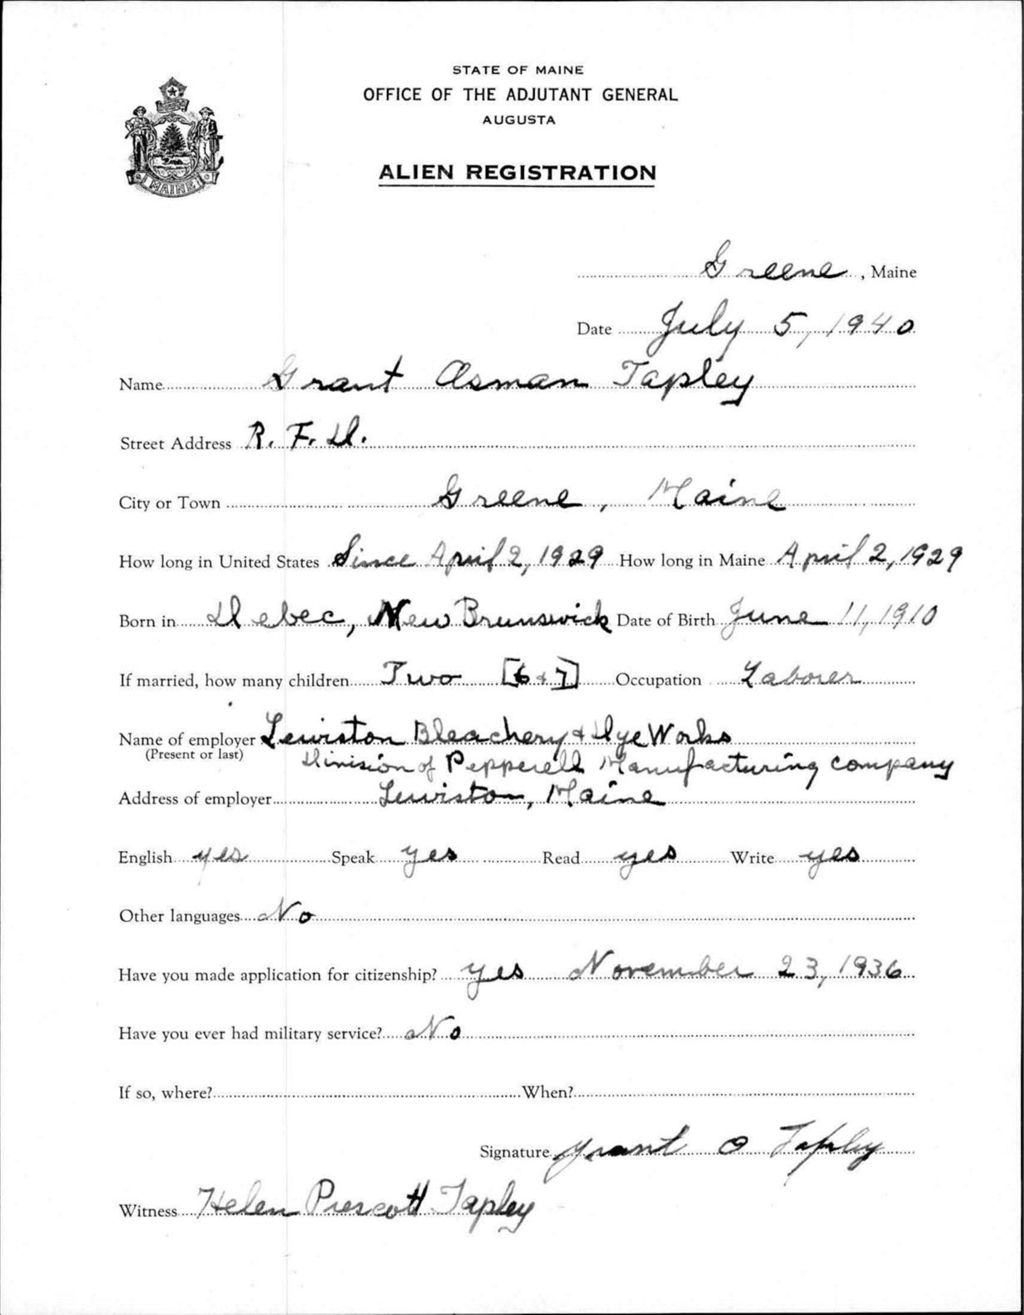 STATE OF MAINE
OFFICE OF THE ADJUTANT GENERAL
AUGUSTA
ALIEN REGISTRATION
MAINE
Greene, Maine
Date July 5, 1940
Name Grant Osman Tapley
Street Address R. F. D.
City or Town Greene, Maine
How long in United States Since April 2, 1929 How long in Maine April 2, 1929
Born in Debec, New Brunswick Date of Birth June 11, 1910
If married, how many children Two [6 + 7] Occupation Laborer
Name of employer Lewiston Bleachery + Dye Works
(Present or last) Division of Pepperell Manufacturing company
Address of employer Lewiston, Maine
English yes Speak yes Read yes Write yes
Other languages No
Have you made application for citizenship? yes November 23, 1936
Have you ever had military service? No
If so, where? When?
Signature Grant O Tapley
Witness Helen Prescott Tapley